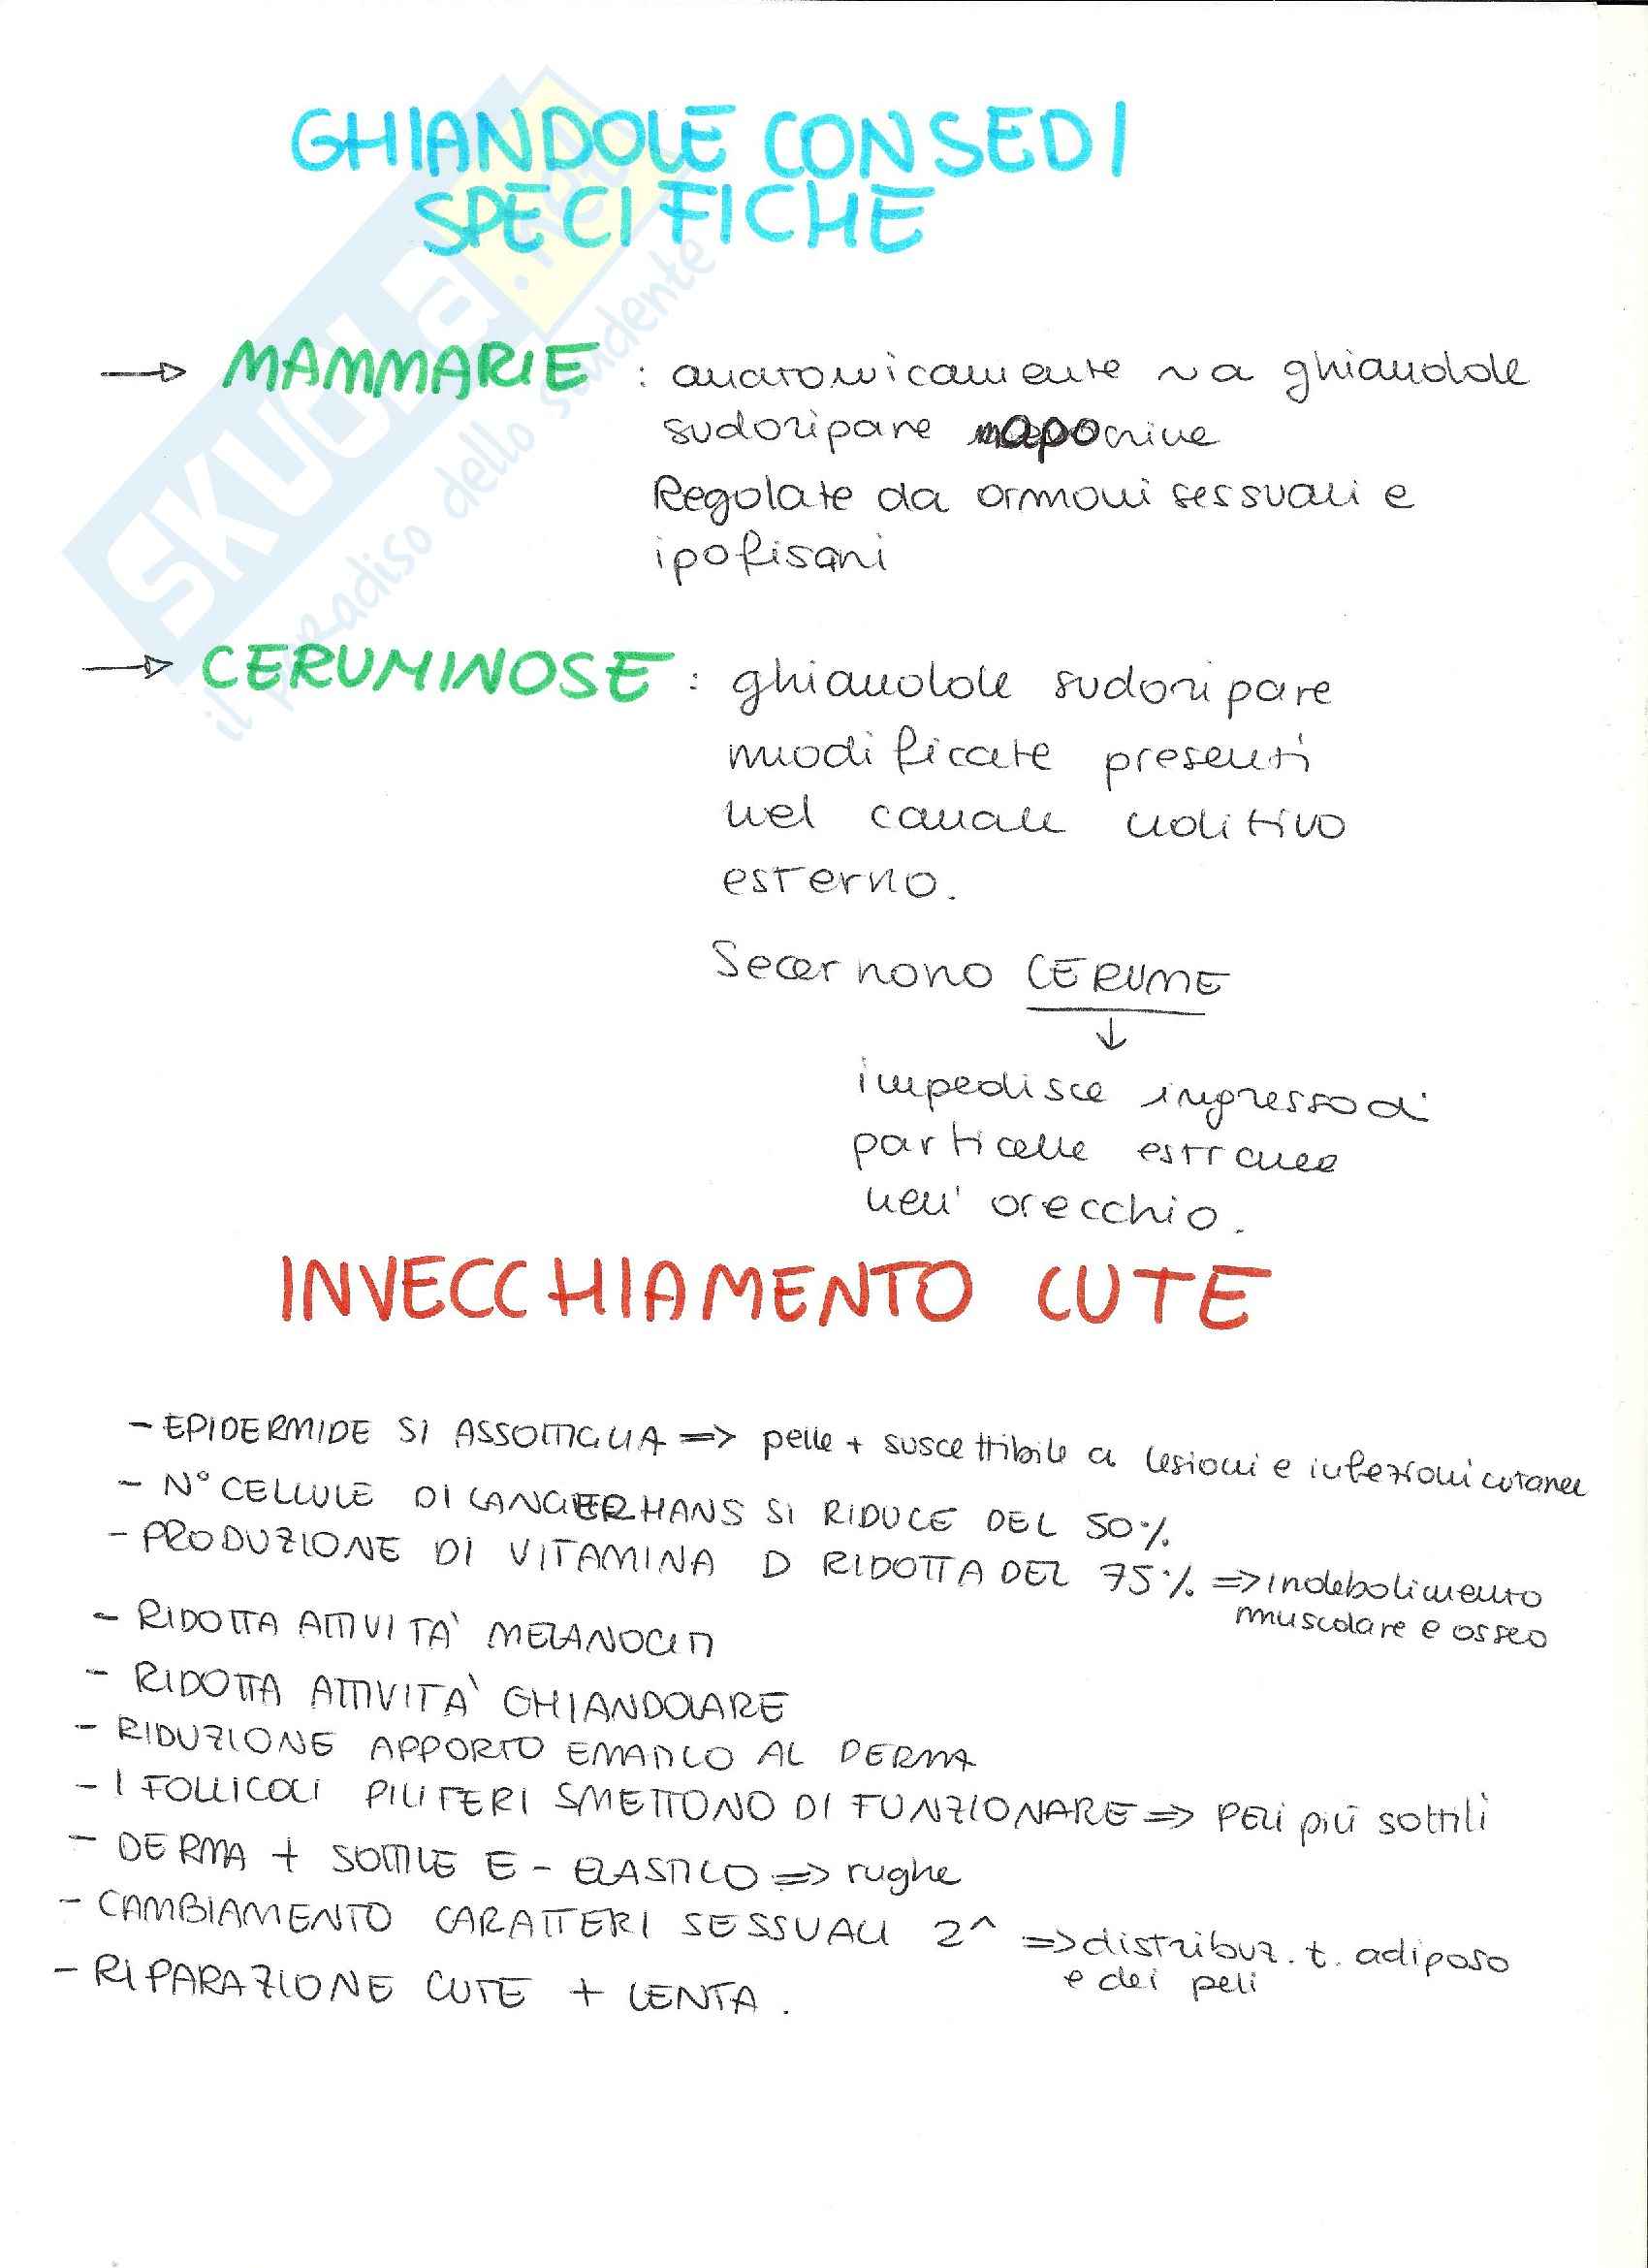 GHIANDOLE CON SEDI
SPECIFICHE
SKUOLa.net
il paradiso dello studente
→ MAMMARIE : anatomicamente ~ a ghiandole
sudoripare apocrine
Regolate da ormoni sessuali e
ipofisari
→ CERUMINOSE : ghiandole sudoripare
modificate presenti
nel canale uditivo
esterno.
Secernono CERUME
↓
impedisce ingresso di
particelle estranee
nell' orecchio.
INVECCHIAMENTO CUTE
- EPIDERMIDE SI ASSOTTIGLIA => pelle + suscettibile a lesioni e infezioni cutanee
- N° CELLULE DI LANGERHANS SI RIDUCE DEL 50%
- PRODUZIONE DI VITAMINA D RIDOTTA DEL 75% => indebolimento
muscolare e osseo
- RIDOTTA ATTIVITÀ MELANOCITI
- RIDOTTA ATTIVITÀ GHIANDOLARE
- RIDUZIONE APPORTO EMATICO AL DERMA
- I FOLLICOLI PILIFERI SMETTONO DI FUNZIONARE => PELI più sottili
- DERMA + SOTTILE E - ELASTICO => rughe
- CAMBIAMENTO CARATTERI SESSUALI 2^ => distribuz. t. adiposo
e dei peli
- RIPARAZIONE CUTE + LENTA .